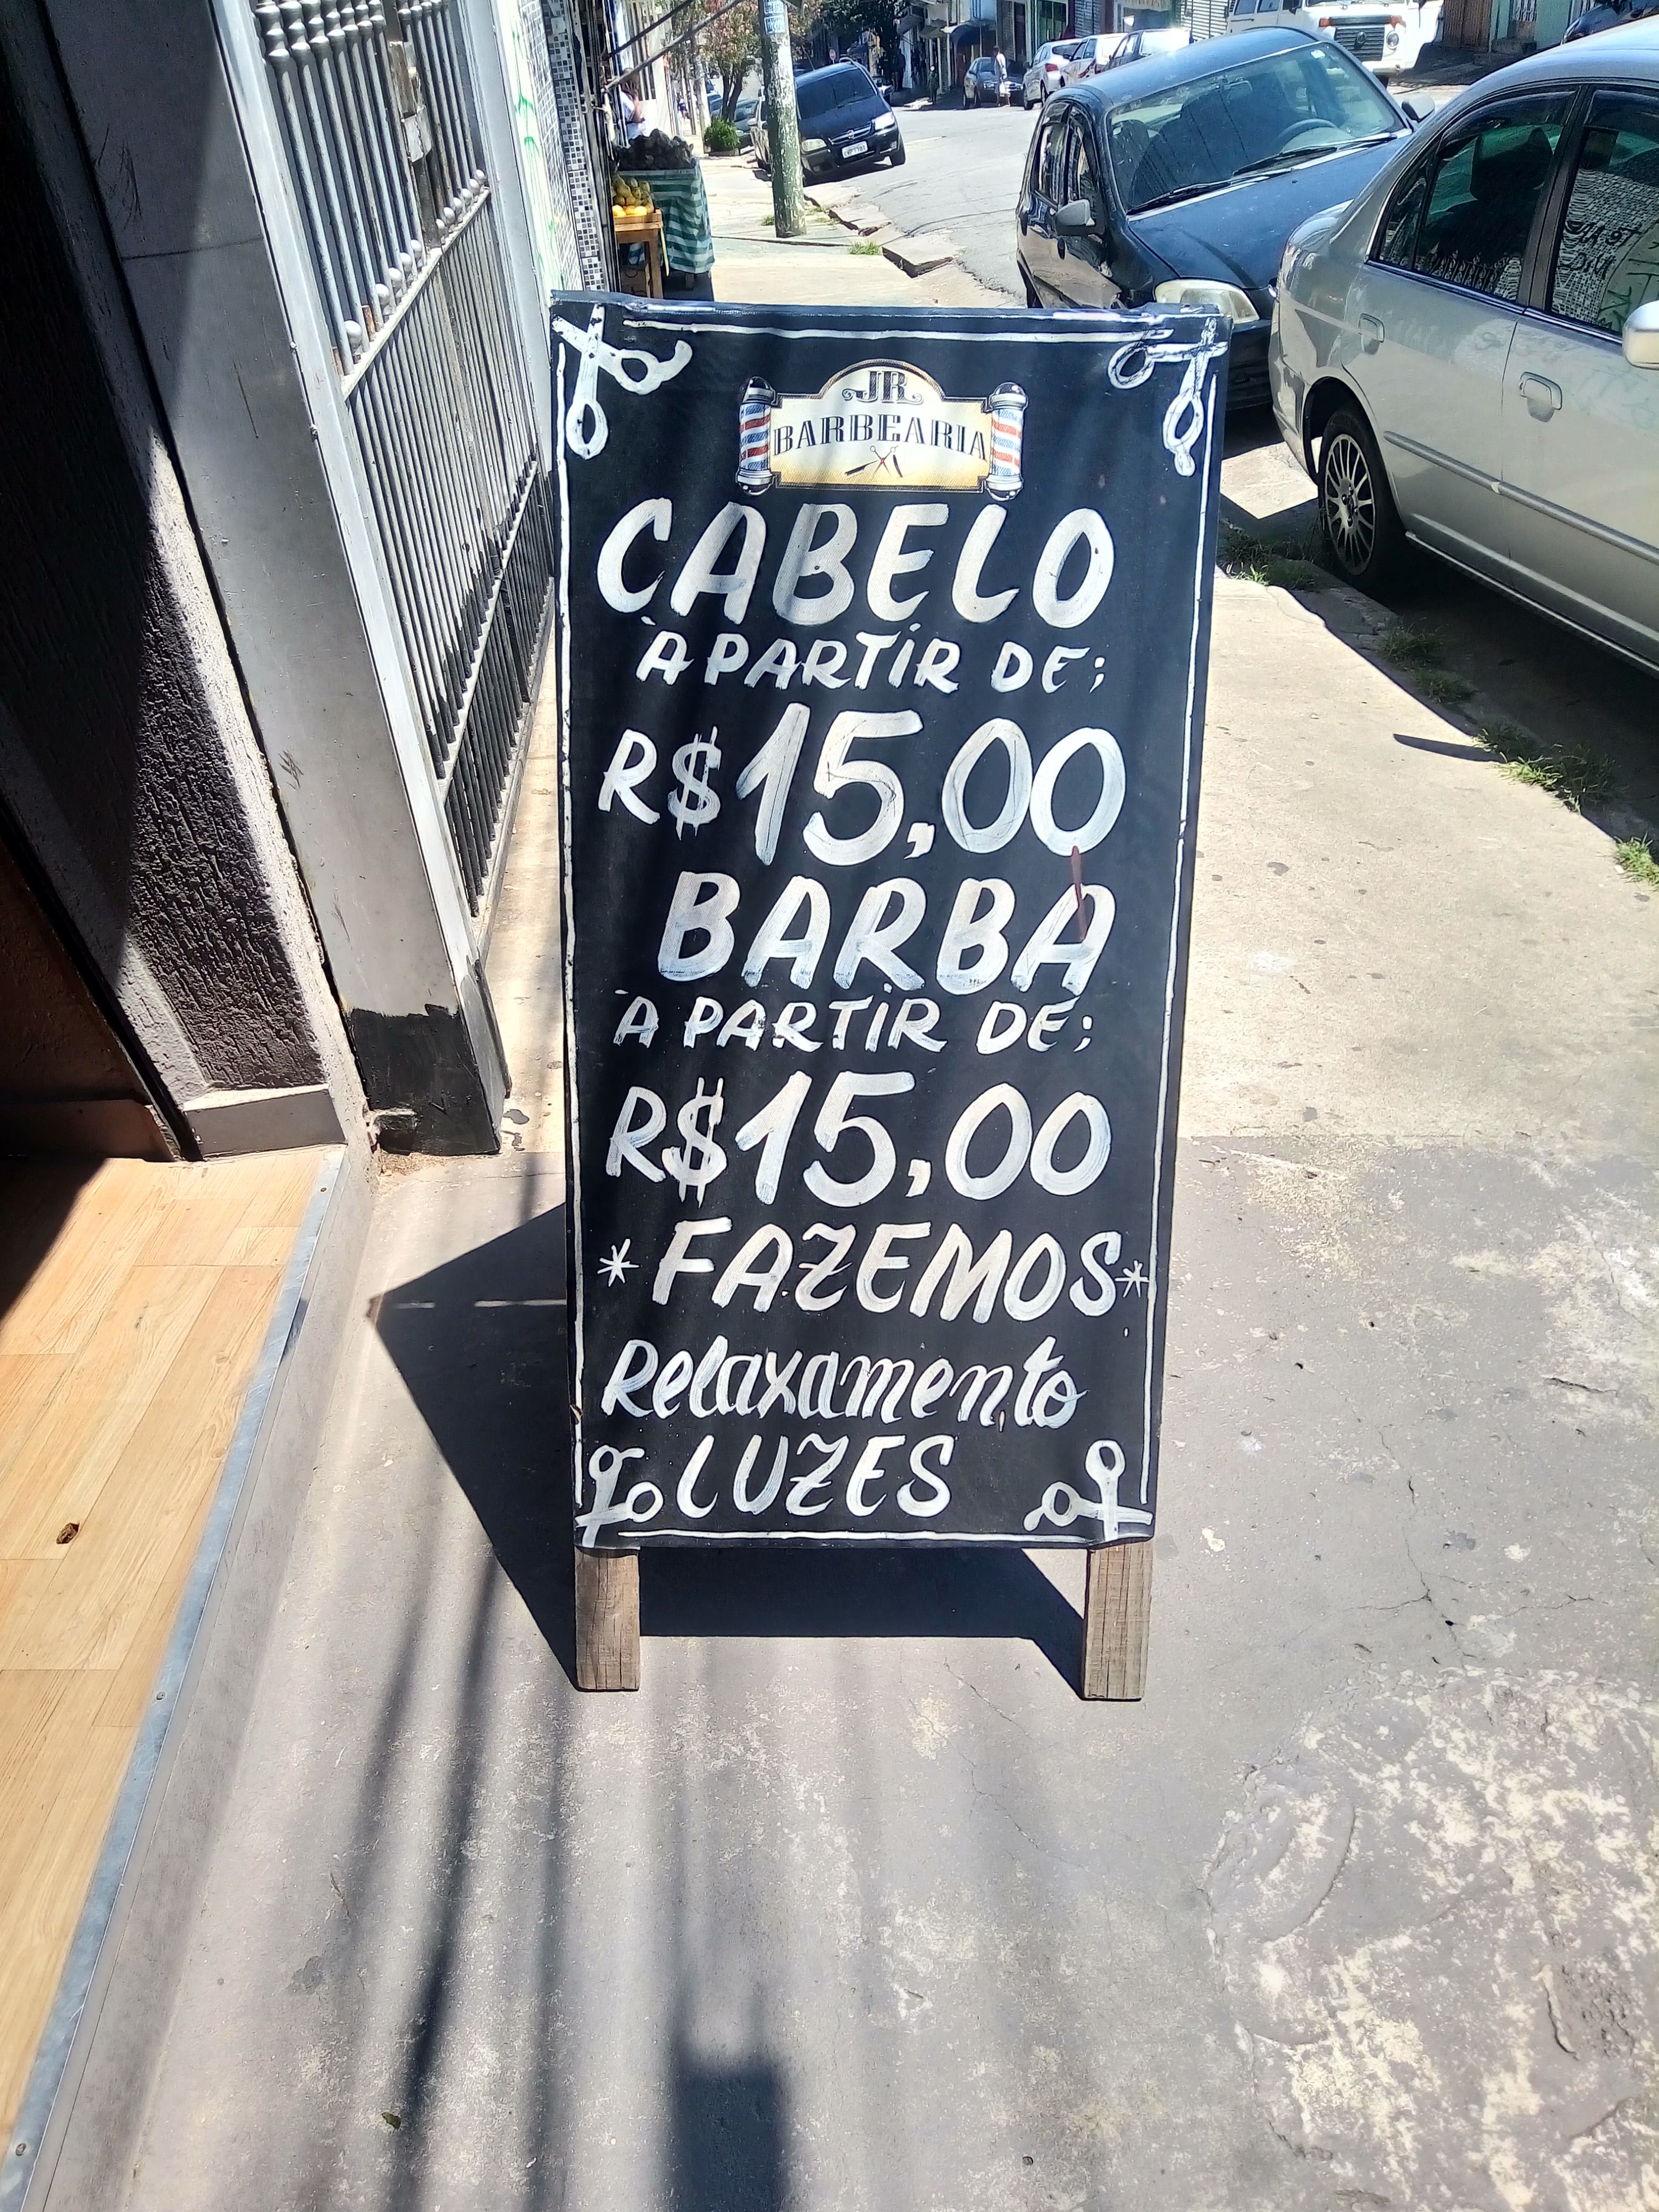 JR
BARBEARIA
CABELO
À PARTIR DE;
R$15,00
BARBA
À PARTIR DE;
R$15,00
*FAZEMOS*
Relaxamento
LUZES